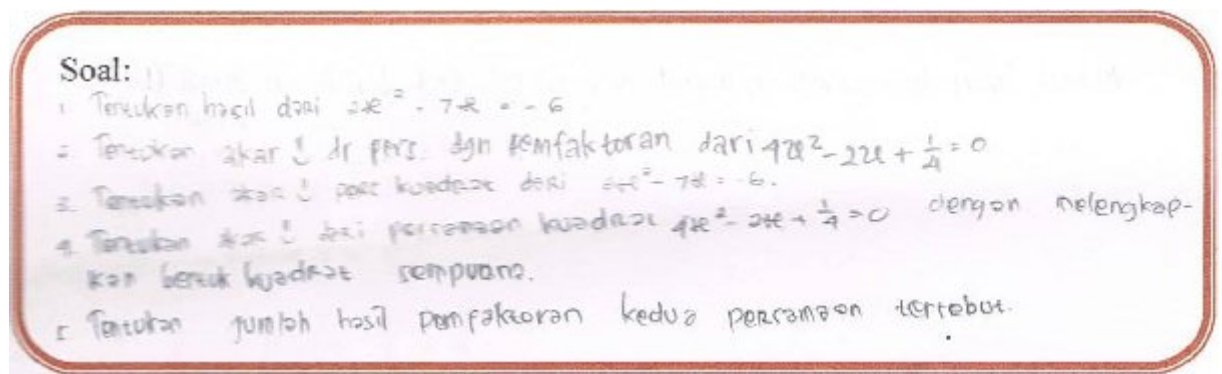 Soal:
1. Tentukan hasil dari 2x² - 7x = -6
2. Tentukan akar² dr pers. dgn pemfaktoran dari 4x² - 2x + 1/4 = 0
3. Tentukan akar² pers kuadrat dari 2x² - 7x = -6.
4. Tentukan akar² dari persamaan kuadrat 4x² - 2x + 1/4 = 0 dengan melengkap-
kan bentuk kuadrat sempurna.
5. Tentukan jumlah hasil pemfaktoran kedua persamaan tertebut.